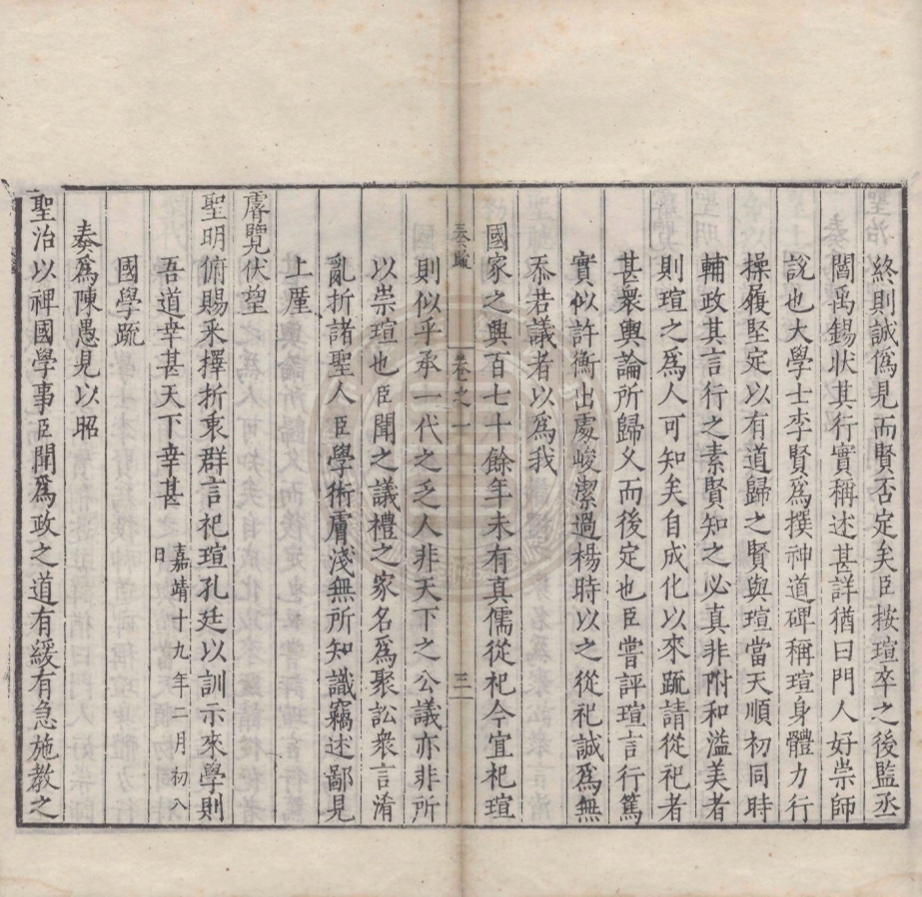 終則誠僞見而賢否定矣臣按瑄卒之後監丞
閻禹錫狀其行實稱述甚詳猶曰門人好崇師
說也大學士李賢爲撰神道碑稱瑄身體力行
操履堅定以有道歸之賢與瑄當天順初同時
輔政其言行之素賢知之必真非附和溢美者
則瑄之爲人可知矣自成化以來疏請從祀者
甚衆輿論所歸久而後定也臣嘗評瑄言行篤
實似許衡出處峻潔過楊時以之從祀誠爲無
忝若議者以爲我
國家之興百七十餘年未有真儒從祀今宜祀瑄
奏疏 卷之一 三
則似乎承一代之乏人非天下之公議亦非所
以崇瑄也臣聞之議禮之家名爲聚訟衆言淆
亂折諸聖人臣學術膚淺無所知識竊述鄙見
上厪
睿覽伏望
聖明俯賜采擇折衷群言祀瑄孔廷以訓示來學則
吾道幸甚天下幸甚 嘉靖十九年二月初八日
國學疏
奏爲陳愚見以昭
聖治以裨國學事臣聞爲政之道有緩有急施教之